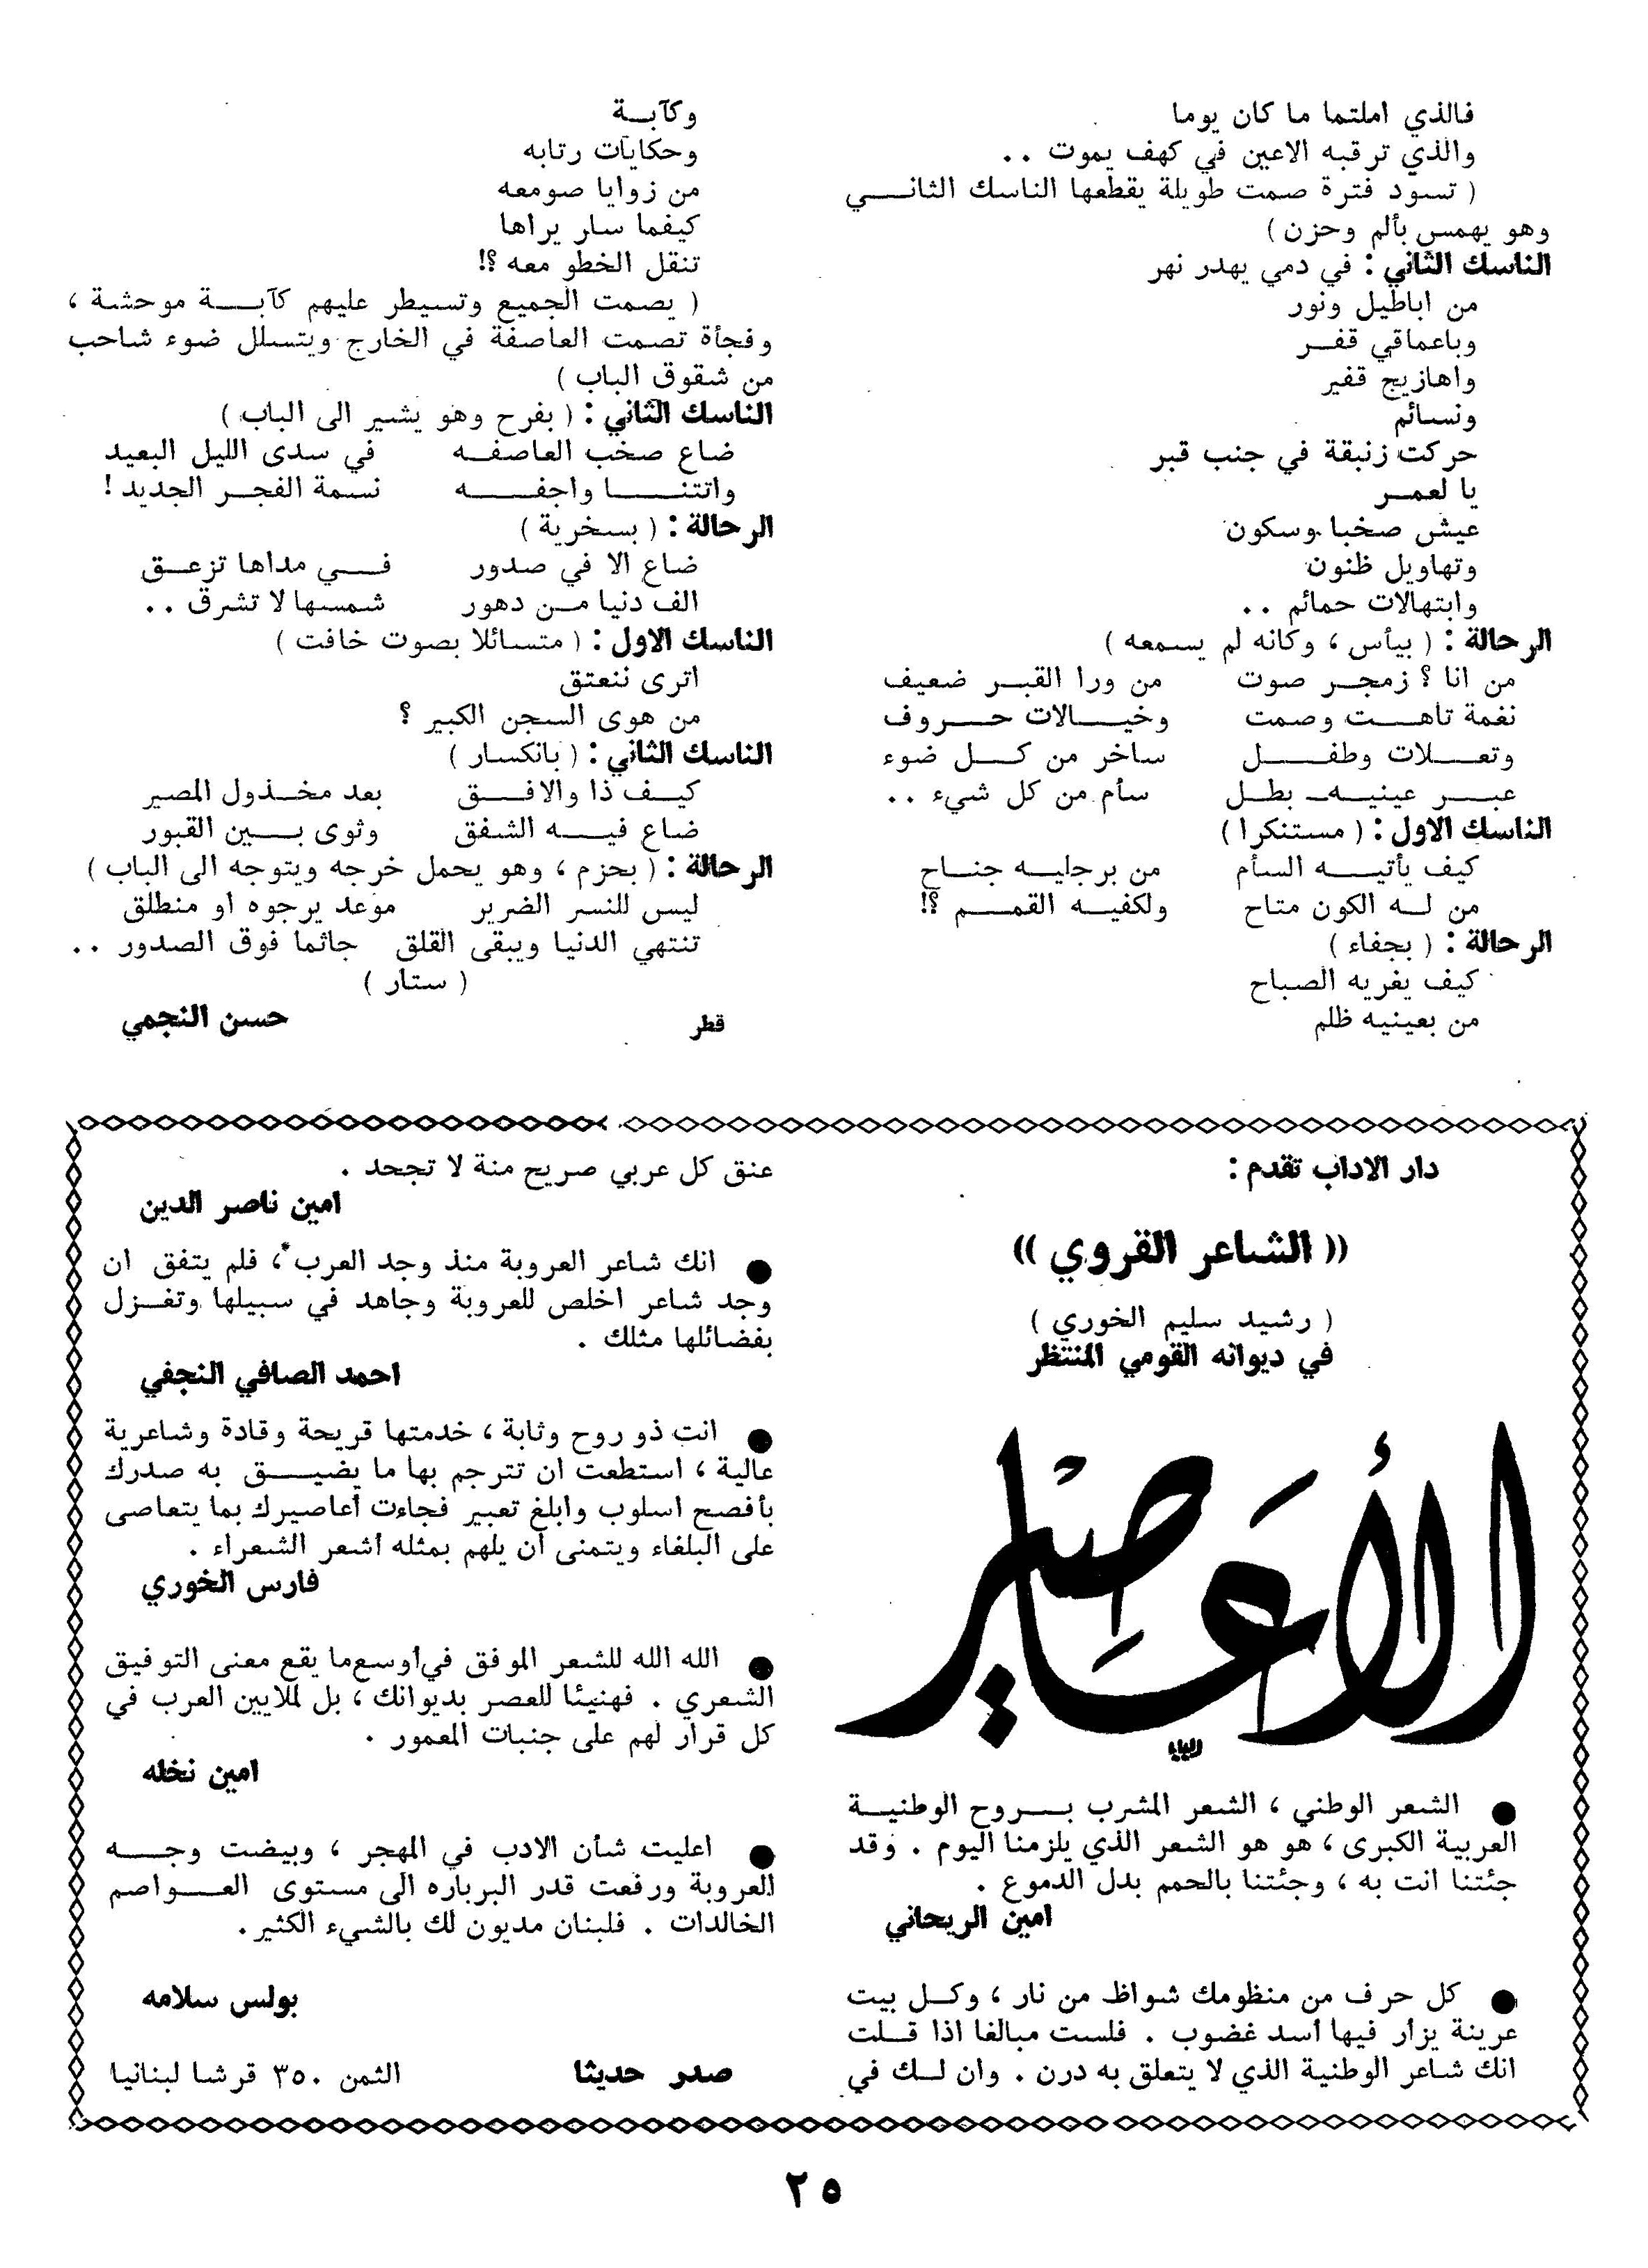 فالذي املتما ما كان يوما
والذي ترقبه الاعين في كهف يموت ..
( تسود فترة صمت طويلة يقطعها الناسك الثانـــي
وهو يهمس بألم وحزن )
الناسك الثاني : في دمي يهدر نهر
من اباطيل ونور
وباعماقي قفـــر
واهازيج قفير
ونسائم
حركت زنبقة في جنب قبر
يا لعمـــر
عيش صخبا وسكون
وتهاويل ظنون
وابتهالات حمائم ..
الرحالة : ( بيأس ، وكانه لم يسمعه )
من انا ؟ زمجــر صوت من ورا القبــر ضعيف
نغمة تاهـــت وصمت وخيـــالات حـــروف
وتعـــلات وطفــــل ساخر من كـــل ضوء
عبـــر عينيـه بطـل سأم من كل شيء ..
الناسك الاول : ( مستنكرا )
كيف يأتيـــه السأم من برجليــه جنــاح
من لــه الكون متاح ولكفيــه القمـــم ؟!
الرحالة : ( بجفاء )
كيف يغريه الصباح
من بعينيه ظلم
وكآبــة
وحكايات رتابه
من زوايا صومعه
كيفما سار يراها
تنقل الخطو معه ؟!
( يصمت الجميع وتسيطر عليهم كآبـــة موحشة ،
وفجأة تصمت العاصفة في الخارج ويتسلل ضوء شاحب
من شقوق الباب )
الناسك الثاني : ( بفرح وهو يشير الى الباب )
ضاع صخب العاصفــه في سدى الليل البعيد
واتتنـــا واجفـــه نسمة الفجــر الجديد !
الرحالة : ( بسخرية )
ضاع الا في صدور فـــي مداها تزعــق
الف دنيا مــن دهور شمسها لا تشرق ..
الناسك الاول : ( متسائلا بصوت خافت )
اترى ننعتق
من هوى السجن الكبير ؟
الناسك الثاني : ( بانكسار )
كيــف ذا والافـــق بعد مخــذول المصير
ضاع فيـــه الشفق وثوى بـــين القبور
الرحالة : ( بحزم ، وهو يحمل خرجه ويتوجه الى الباب )
ليس للنسر الضرير موعد يرجوه او منطلق
تنتهي الدنيا ويبقى القلق جاثما فوق الصدور ..
( ستار )
قطر حسن النجمي
دار الاداب تقدم :
(( الشاعر القروي ))
( رشيد سليم الخوري )
في ديوانه القومي المنتظر
الأعاصير
● الشعر الوطني ، الشعر المشرب بـــروح الوطنيــة
العربية الكبرى ، هو هو الشعر الذي يلزمنا اليوم . وقد
جئتنا انت به ، وجئتنا بالحمم بدل الدموع .
امين الريحاني
● كل حرف من منظومك شواظ من نار ، وكــل بيت
عرينة يزأر فيها أسد غضوب . فلست مبالغا اذا قــلت
انك شاعر الوطنية الذي لا يتعلق به درن . وان لــك في
عنق كل عربي صريح منة لا تجحد .
امين ناصر الدين
● انك شاعر العروبة منذ وجد العرب ، فلم يتفق ان
وجد شاعر اخلص للعروبة وجاهد في سبيلها وتغــزل
بفضائلها مثلك .
احمد الصافي النجفي
● انت ذو روح وثابة ، خدمتها قريحة وقادة وشاعرية
عالية ، استطعت ان تترجم بها ما يضيـــق به صدرك
بأفصح اسلوب وأبلغ تعبير فجاءت أعاصيرك بما يتعاصى
على البلغاء ويتمنى أن يلهم بمثله أشعر الشعراء .
فارس الخوري
● الله الله للشعر الموفق في أوسع ما يقع معنى التوفيق
الشعري . فهنيئا للعصر بديوانك ، بل لملايين العرب في
كل قرار لهم على جنبات المعمور .
امين نخله
● اعليت شأن الادب في المهجر ، وبيضت وجـــه
العروبة ورفعت قدر البرباره الى مستوى العـــواصم
الخالدات . فلبنان مديون لك بالشيء الكثير .
بولس سلامه
صدر حديثا الثمن ٣٥٠ قرشا لبنانيا
٢٥